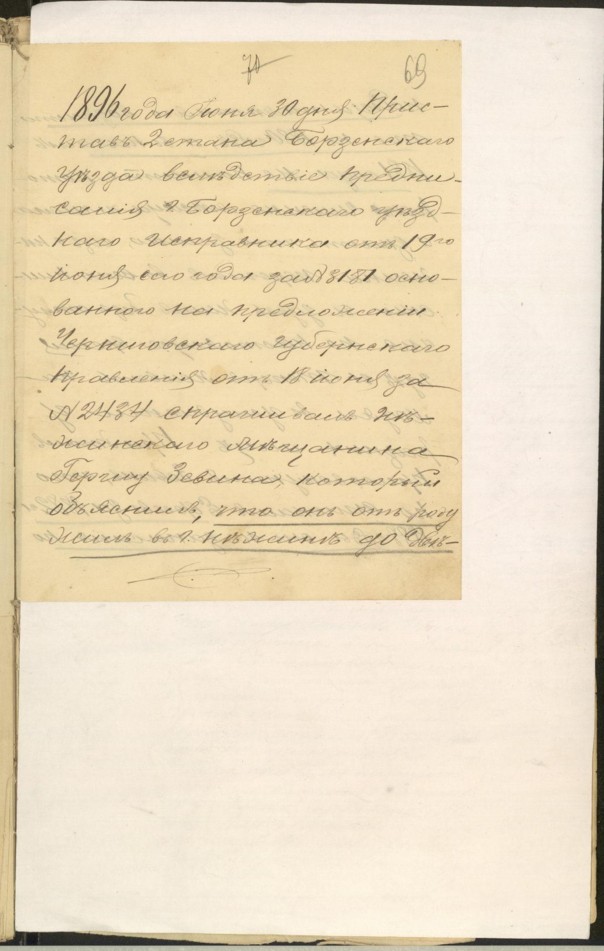 70 69
1896 года Июня 30 дня Прис-
тавъ 2 стана Борзенскаго
Уѣзда вслѣдствіе предпи-
санія г. Борзенскаго уѣзд-
наго Исправника отъ 19го
Іюня сего года за № 3181 осно-
ваннаго на предложеніи
Черниговскаго Губернскаго
Правленія отъ 18 іюня за
№ 2434 спрашивалъ Нѣ-
жинскаго Мѣщанина
Зевина, который
объяснилъ, что онъ отъ роду
жилъ въ г. Нѣжинѣ до